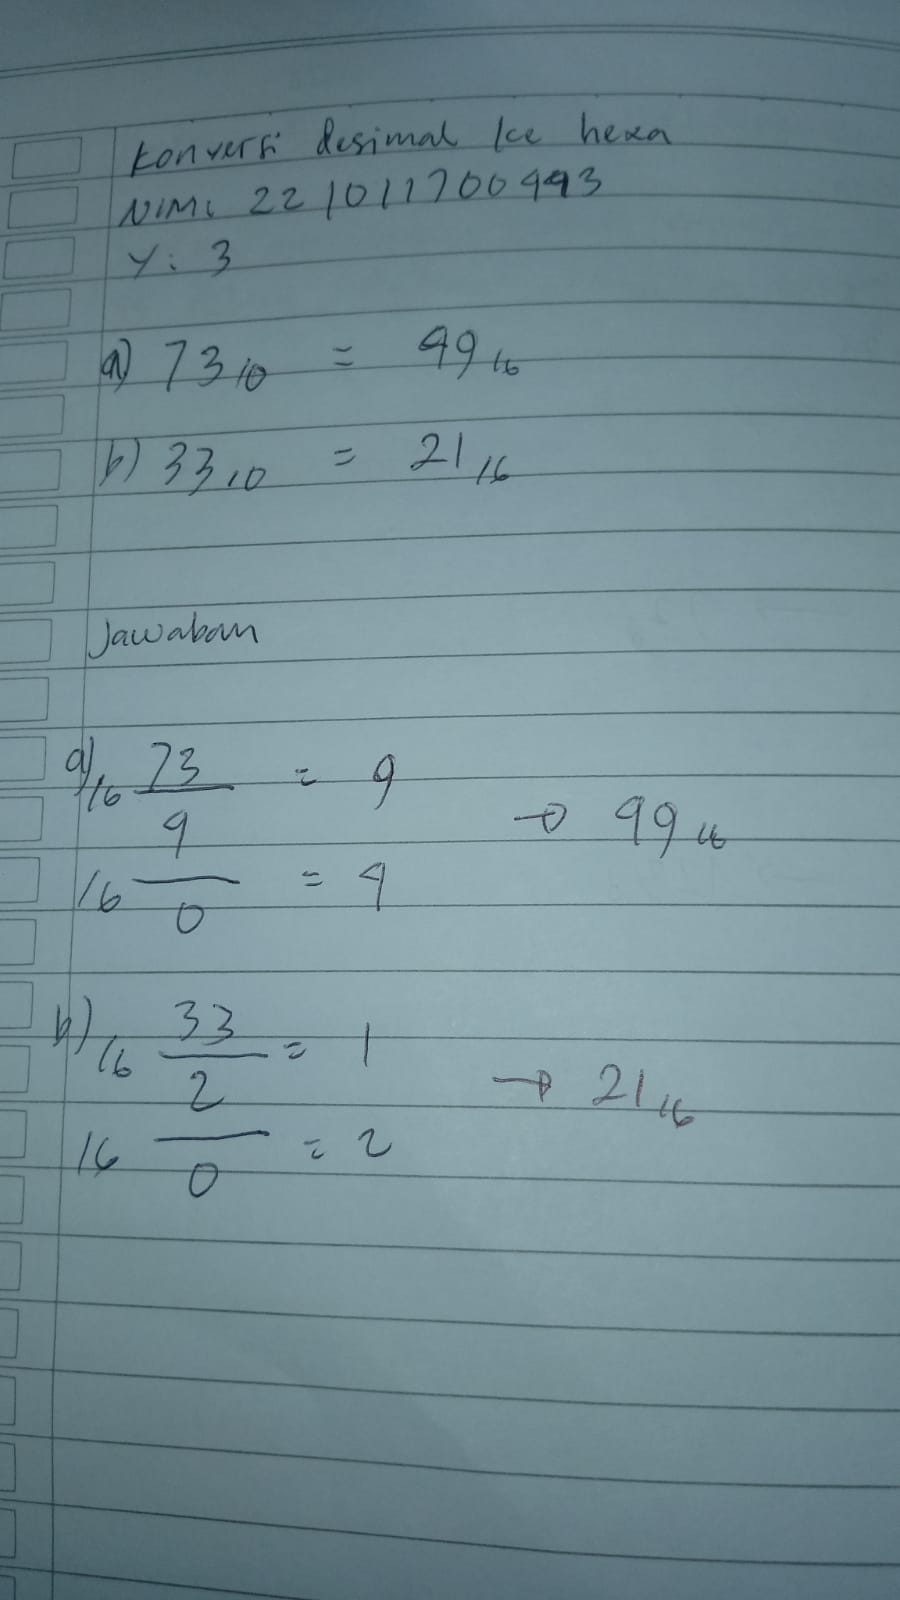 Konversi desimal ke hexa
NIM: 221011700443
Y: 3
a) 73 10 = 49 16
b) 33 10 = 21 16
Jawaban
a) 16 73 = 9
4 → 49 16
16 0 = 4
b) 16 33 = 1
2 → 21 16
16 0 = 2